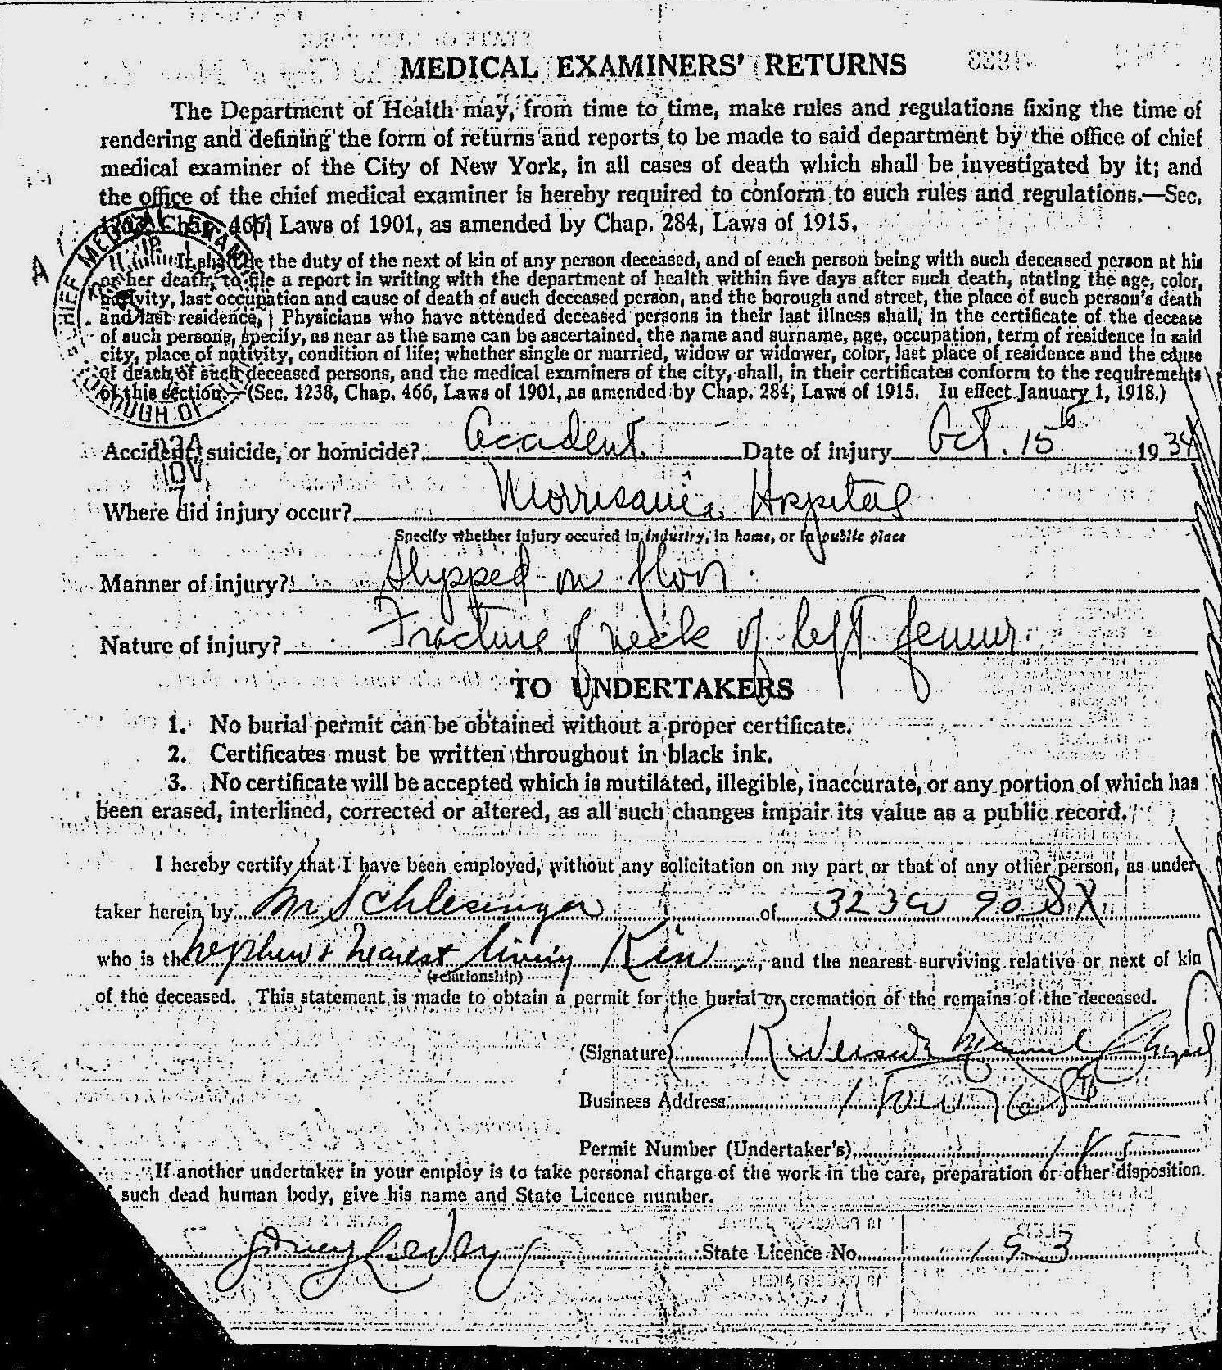 MEDICAL EXAMINERS' RETURNS
The Department of Health may, from time to time, make rules and regulations fixing the time of
rendering and defining the form of returns and reports to be made to said department by the office of chief
medical examiner of the City of New York, in all cases of death which shall be investigated by it; and
the office of the chief medical examiner is hereby required to conform to such rules and regulations.—Sec.
Chap. 466, Laws of 1901, as amended by Chap. 284, Laws of 1915.
It shall be the duty of the next of kin of any person deceased, and of each person being with such deceased person at his
or her death, to file a report in writing with the department of health within five days after such death, stating the age, color,
nativity, last occupation and cause of death of such deceased person, and the borough and street, the place of such person's death
and last residence. Physicians who have attended deceased persons in their last illness shall, in the certificate of the decease
of such persons, specify, as near as the same can be ascertained, the name and surname, age, occupation, term of residence in said
city, place of nativity, condition of life; whether single or married, widow or widower, color, last place of residence and the cause
of death of such deceased persons, and the medical examiners of the city, shall, in their certificates conform to the requirements
of this section.—(Sec. 1238, Chap. 466, Laws of 1901, as amended by Chap. 284, Laws of 1915. In effect January 1, 1918.)
Accident, suicide, or homicide? Accident. Date of injury Oct. 15th 1934
Where did injury occur? Morrisania Hospital
Specify whether injury occured in industry, in home, or in public place
Manner of injury? Slipped on floor.
Nature of injury? Fracture of neck of left femur
TO UNDERTAKERS
1. No burial permit can be obtained without a proper certificate.
2. Certificates must be written throughout in black ink.
3. No certificate will be accepted which is mutilated, illegible, inaccurate, or any portion of which has
been erased, interlined, corrected or altered, as all such changes impair its value as a public record.
I hereby certify that I have been employed, without any solicitation on my part or that of any other person, as under-
taker herein by M Schlesinger of 323 W 90 St.
who is the Nephew & nearest living Kin, and the nearest surviving relative or next of kin
(relationship)
of the deceased. This statement is made to obtain a permit for the burial or cremation of the remains of the deceased.
(Signature) Riverside Memorial Chapel
Business Address 76 St
Permit Number (Undertaker's) 185
If another undertaker in your employ is to take personal charge of the work in the care, preparation or other disposition
such dead human body, give his name and State Licence number.
State Licence No. 153